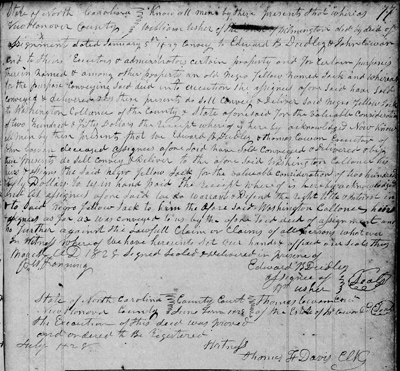 State of North Carolina Know all men by these presents that whereas
New Hanover County William Usher of the of Wilmington did by deed of
assignment dated January 5th convey to Edward B Dudley & John Cowan
and to there Executors & administrators certain property and for certain purposes
therein named & among other property an old Negro fellow named Jack and whereas
for the purpose conveying said deed into execution the assignees afore said have Sold
Conveyed & delivered & by these presents do sell Convey & deliver Said Negro fellow Jack
to Washington of the County & State aforesaid for the Valuable Consideration
of two Hundred & fifty Dollars the receipt where of is here by acknowledged Now Know
all men by these presents that we Edward B. Dudley & Thomas Cowan Executor
John Cowan deceased assignees afore said have Sold Conveyed & delivered & by
these presents do sell Convey & deliver to the afore Said Washington his
heirs & assigns the Said Negro fellow Jack for the valuable consideration of two hundred
fifty Dollars to us in hand paid the Receipt where of is hereby acknowledged
the assignees afore said do warrant & defend the right title & interest
to Said Negro fellow Jack to him the afore Said Washington
assigns as far as was conveyed to us by the afore Said deed of assignment and
no further against the Lawfull Claim or Claims of all persons whatever
In Witness Where of We have hereunto Set our hands & affixed our Seals this
AD 1828 Signed Sealed & delivered in presence of
Edward B Dudley
assignee of Seal
Wm Usher
State of North Carolina County Court Thomas Cowan
New Hanover County June Term 1828 of the Estate of Jn Cowan Seal
the Execution of this deed was proved
and ordered to be registered
July 4 28 Witness
Thomas F Davis Clk